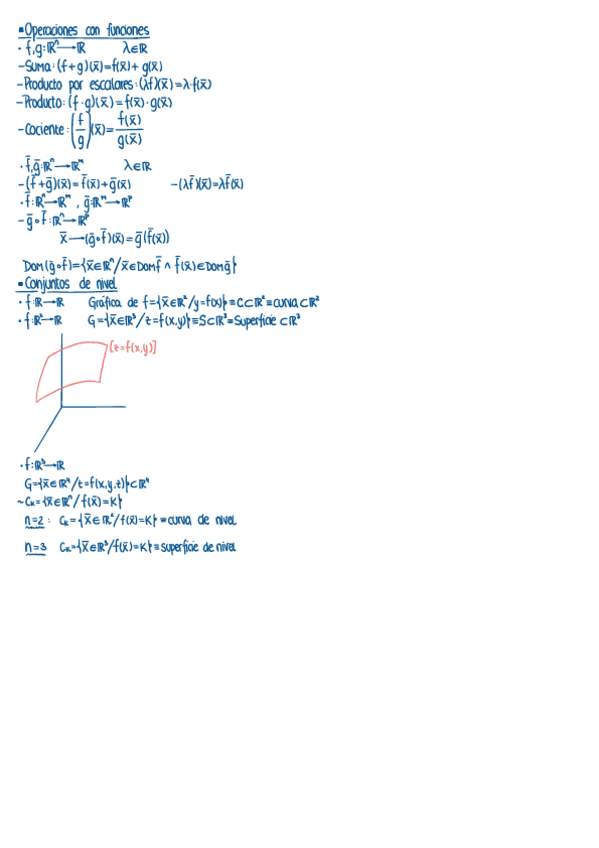 ▪Operaciones con funciones
· f,g:ℝⁿ→ℝ λ∈ℝ
-Suma:(f+g)(x̄)=f(x̄)+g(x̄)
-Producto por escalares:(λf)(x̄)=λ·f(x̄)
-Producto:(f·g)(x̄)=f(x̄)·g(x̄)
-Cociente:(f/g)(x̄)=f(x̄)/g(x̄)
· f̄,ḡ:ℝⁿ→ℝᵐ λ∈ℝ
-(f̄+ḡ)(x̄)=f̄(x̄)+ḡ(x̄) -(λf̄)(x̄)=λf̄(x̄)
· f̄:ℝⁿ→ℝᵐ, ḡ:ℝᵐ→ℝᵖ
-ḡ∘f̄:ℝⁿ→ℝᵖ
x̄→(ḡ∘f̄)(x̄)=ḡ(f̄(x̄))
Dom(ḡ∘f̄)={x̄∈ℝⁿ/x̄∈Domf̄ ∧ f̄(x̄)∈Domḡ}
▪Conjuntos de nivel
· f:ℝ→ℝ Gráfica de f={x̄∈ℝ²/y=f(x)}≡C⊂ℝ²≡curva⊂ℝ²
· f:ℝ²→ℝ G={x̄∈ℝ³/z=f(x,y)}≡S⊂ℝ³≡Superficie⊂ℝ³
[z=f(x,y)]
· f:ℝ³→ℝ
G={x̄∈ℝ⁴/t=f(x,y,z)}⊂ℝ⁴
~Cₖ={x̄∈ℝⁿ/f(x̄)=K}
n=2: Cₖ={x̄∈ℝ²/f(x̄)=K}≡curva de nivel
n=3 Cₖ={x̄∈ℝ³/f(x̄)=K}≡superficie de nivel